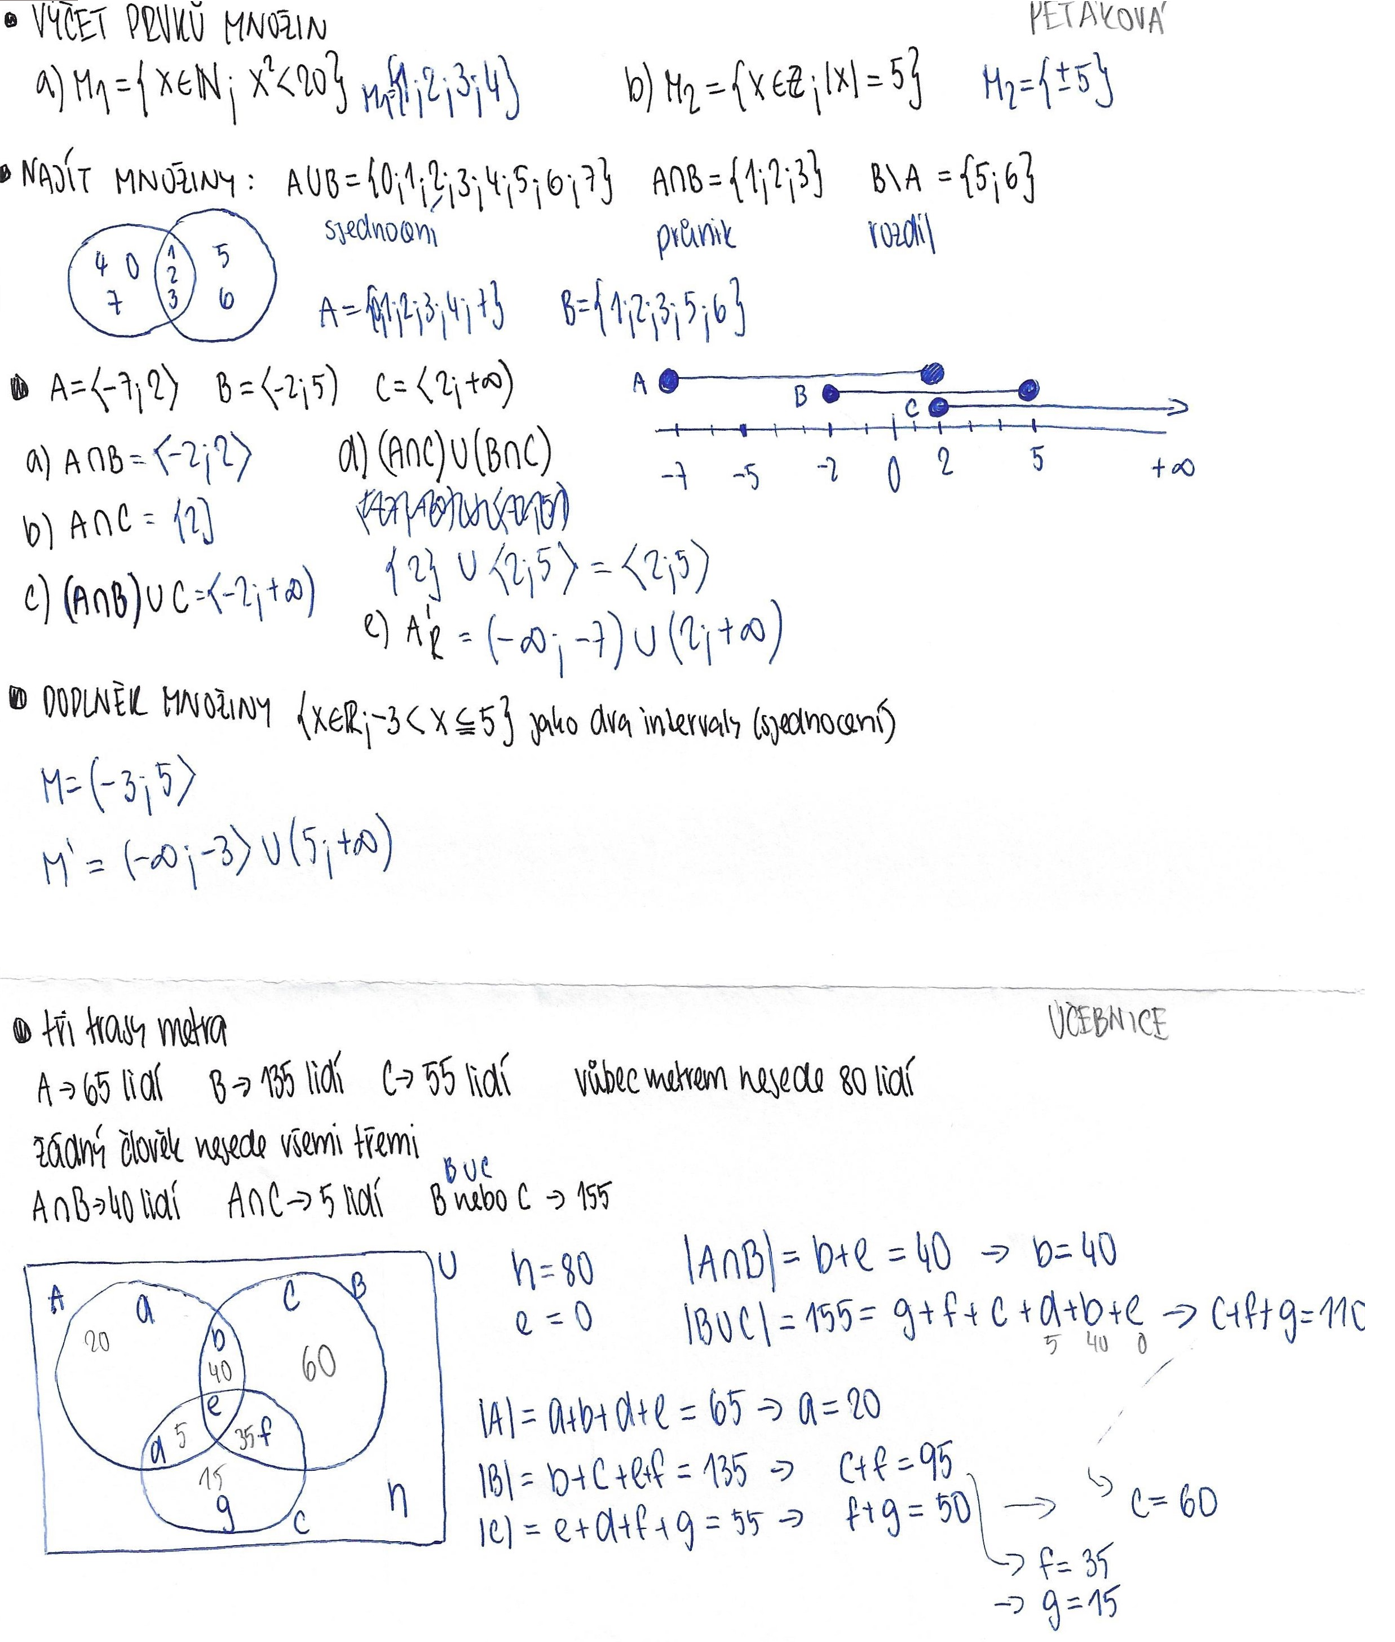 • VÝČET PRVKŮ MNOŽIN PETÁKOVÁ
a) M₁={x∈ℕ; x²<20} M₁={1;2;3;4} b) M₂={x∈ℤ; |x|=5} M₂={±5}
• NAJÍT MNOŽINY: A∪B={0;1;2;3;4;5;6;7} A∩B={1;2;3} B\A={5;6}
sjednocení průnik rozdíl
4 0 1 5
2
7 3 6
A={0;1;2;3;4;7} B={1;2;3;5;6}
• A=⟨-7;2⟩ B=⟨-2;5) C=⟨2;+∞)
A
B
C
-7 -5 -2 0 2 5 +∞
a) A∩B=⟨-2;2⟩ d) (A∩C)∪(B∩C)
b) A∩C={2}
{2} ∪ ⟨2;5⟩ = ⟨2;5)
c) (A∩B)∪C=⟨-2;+∞)
e) A'R = (-∞;-7)∪(2;+∞)
• DOPLNĚK MNOŽINY {x∈ℝ;-3<x≦5} jako dva intervaly (sjednocení)
M=(-3;5⟩
M'=(-∞;-3⟩∪(5;+∞)
• tři trasy metra UČEBNICE
A→65 lidí B→135 lidí C→55 lidí vůbec metrem nejede 80 lidí
žádný člověk nejede všemi třemi
B∪C
A∩B→40 lidí A∩C→5 lidí B nebo C → 155
U
A a c B
20 b 60
40
e
d 5 35 f
15
g C h
h=80
e=0
|A∩B|=b+e=40 → b=40
|B∪C|=155=g+f+c+d+b+e → c+f+g=110
5 40 0
|A|=a+b+d+e=65 → a=20
|B|=b+c+e+f=135 → c+f=95
|C|=e+d+f+g=55 → f+g=50 → c=60
→ f=35
→ g=15